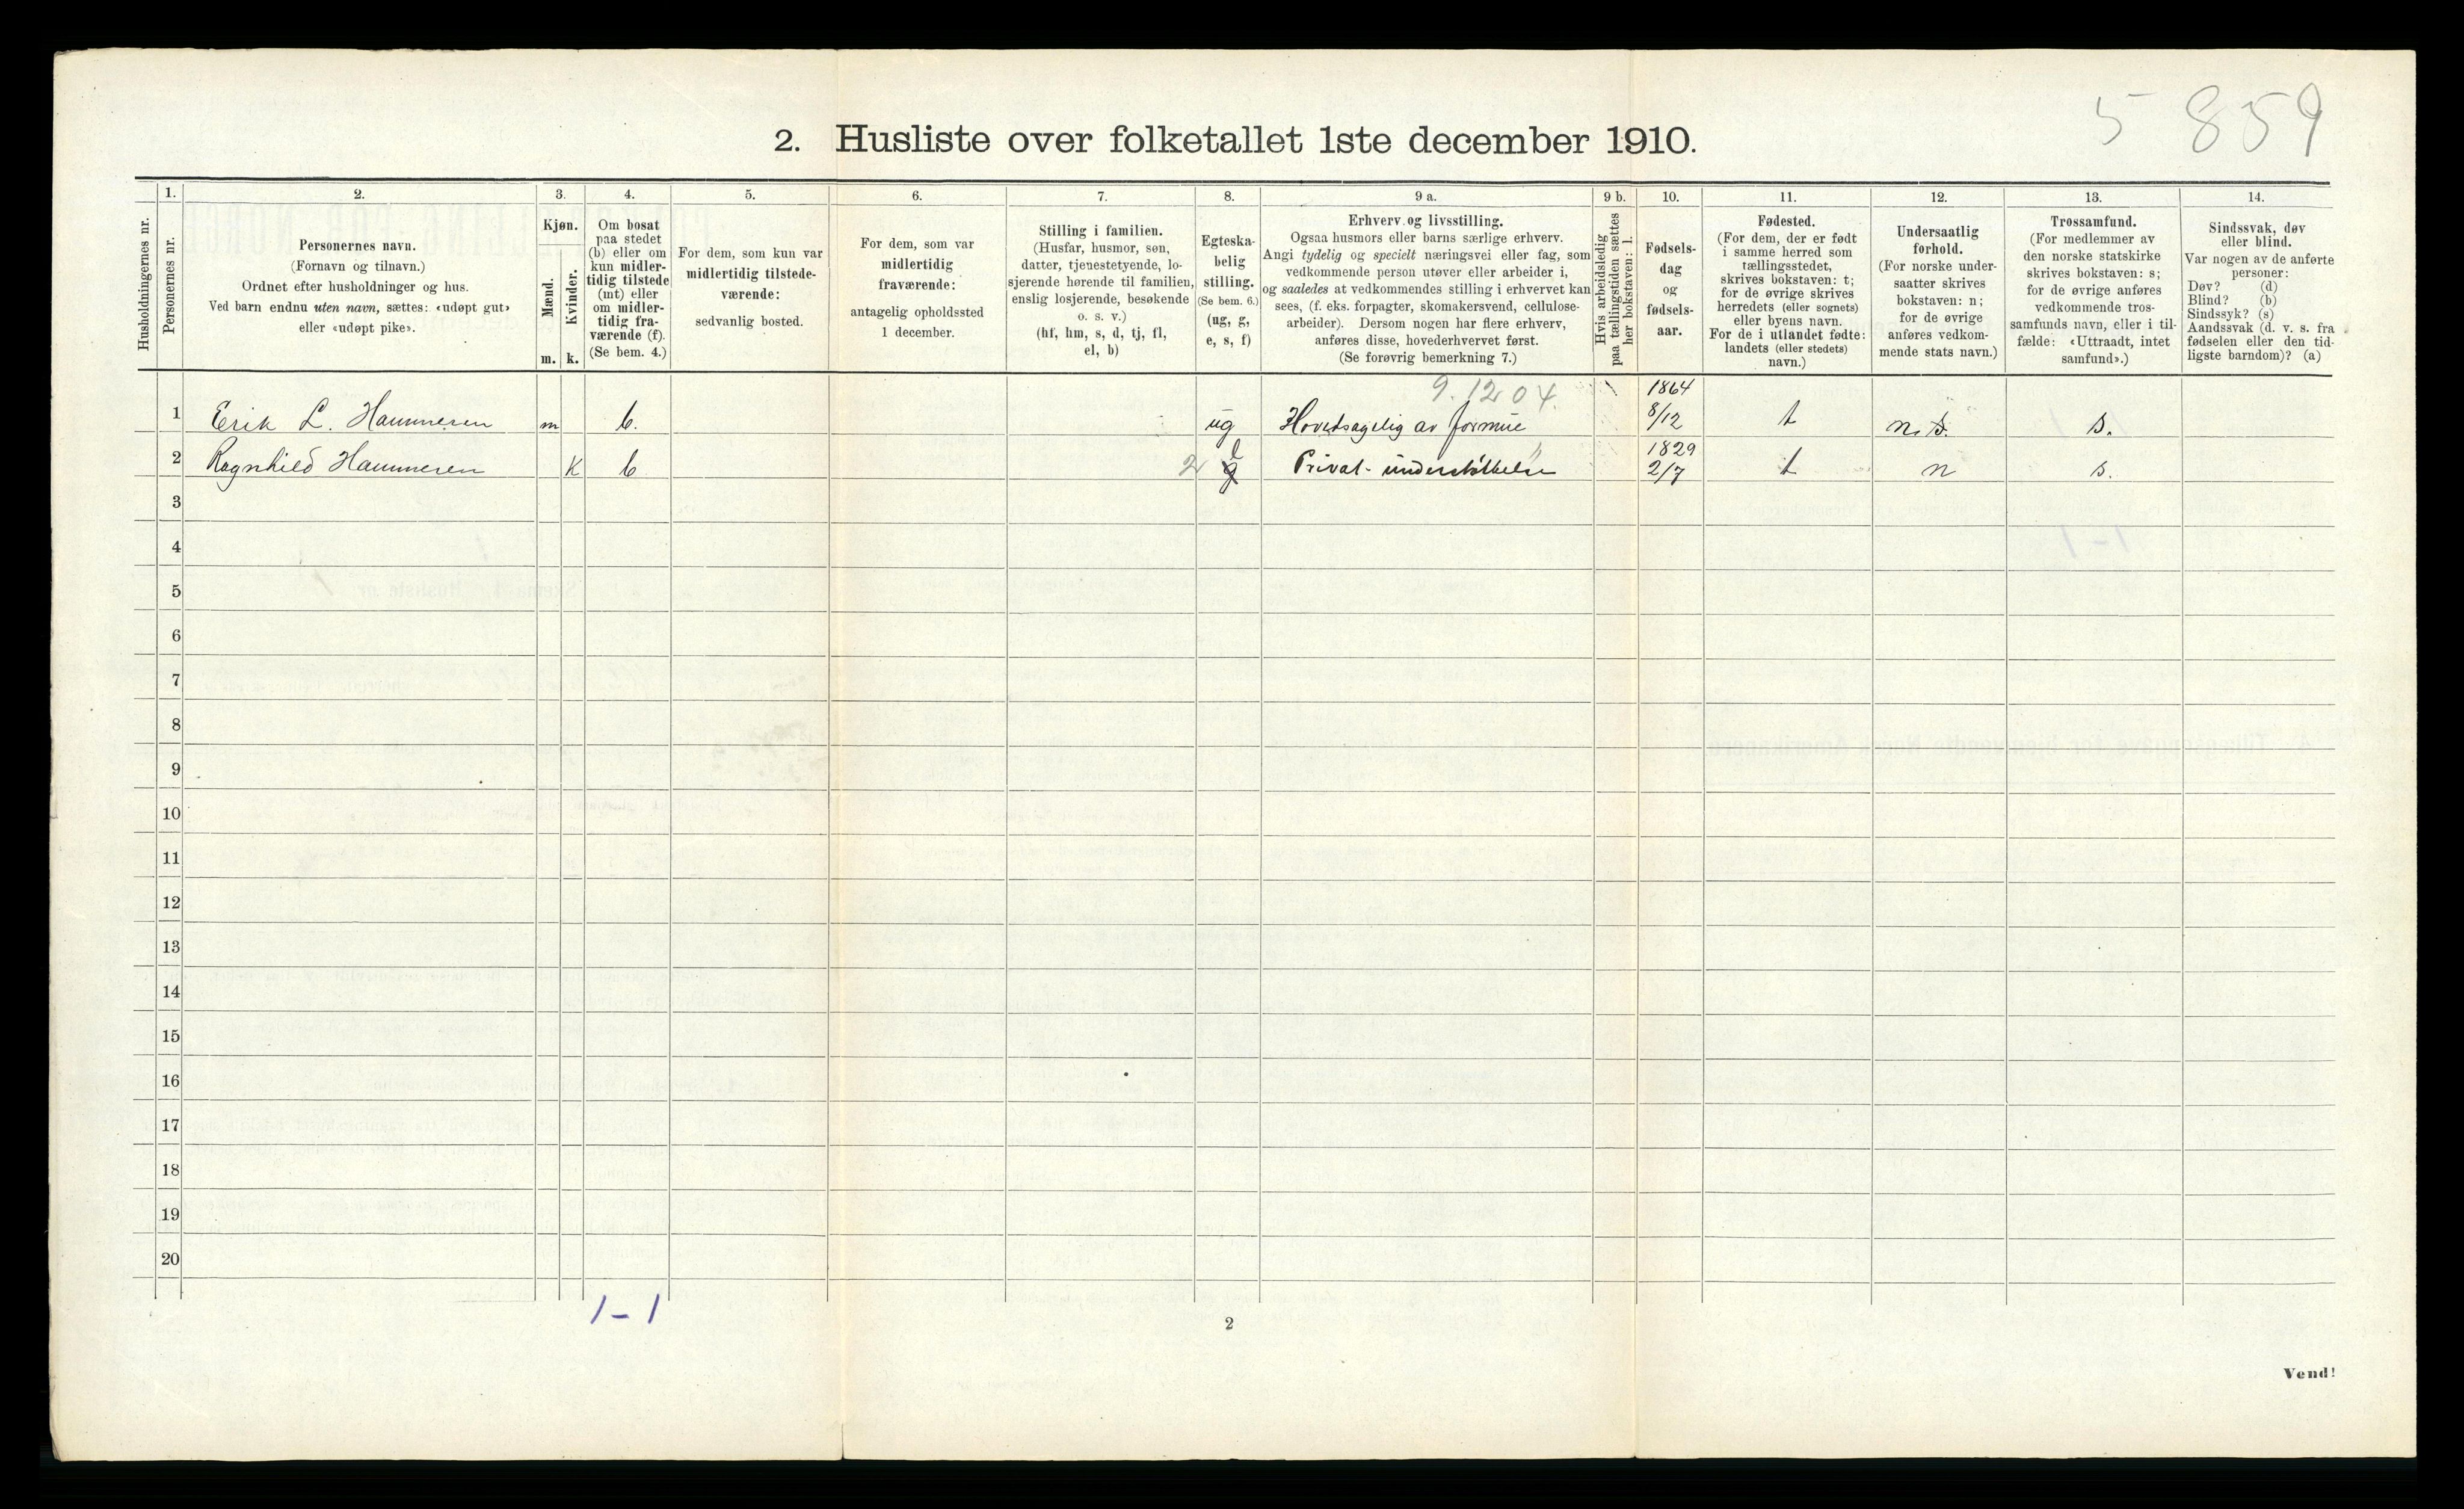 5 859
2. Husliste over folketallet 1ste december 1910.
Husholdningernes nr.
1.
Personernes nr.
2.
Personernes navn.
(Fornavn og tilnavn.)
Ordnet efter husholdninger og hus.
Ved barn endnu uten navn, sættes: «udøpt gut»
eller «udøpt pike».
3.
Kjøn.
Mænd.
m.
Kvinder.
k.
4.
Om bosat
paa stedet
(b) eller om
kun midler-
tidig tilstede
(mt) eller
om midler-
tidig fra-
værende (f).
(Se bem. 4.)
5.
For dem, som kun var
midlertidig tilstede-
værende:
sedvanlig bosted.
6.
For dem, som var
midlertidig
fraværende:
antagelig opholdssted
1 december.
7.
Stilling i familien.
(Husfar, husmor, søn,
datter, tjenestetyende, lo-
sjerende hørende til familien,
enslig losjerende, besøkende
o. s. v.)
(hf, hm, s, d, tj, fl,
el, b)
8.
Egteska-
belig
stilling.
(Se bem. 6.)
(ug, g,
e, s, f)
9 a.
Erhverv og livsstilling.
Ogsaa husmors eller barns særlige erhverv.
Angi tydelig og specielt næringsvei eller fag, som
vedkommende person utøver eller arbeider i,
og saaledes at vedkommendes stilling i erhvervet kan
sees, (f. eks. forpagter, skomakersvend, cellulose-
arbeider). Dersom nogen har flere erhverv,
anføres disse, hovederhvervet først.
(Se forøvrig bemerkning 7.)
9 b.
Hvis arbeidsledig
paa tællingstiden sættes
her bokstaven: l.
10.
Fødsels-
dag
og
fødsels-
aar.
11.
Fødested.
(For dem, der er født
i samme herred som
tællingsstedet,
skrives bokstaven: t;
for de øvrige skrives
herredets (eller sognets)
eller byens navn.
For de i utlandet fødte:
landets (eller stedets)
navn.)
12.
Undersaatlig
forhold.
(For norske under-
saatter skrives
bokstaven: n;
for de øvrige
anføres vedkom-
mende stats navn.)
13.
Trossamfund.
(For medlemmer av
den norske statskirke
skrives bokstaven: s;
for de øvrige anføres
vedkommende tros-
samfunds navn, eller i til-
fælde: «Uttraadt, intet
samfund».)
14.
Sindssvak, døv
eller blind.
Var nogen av de anførte
personer:
Døv? (d)
Blind? (b)
Sindssyk? (s)
Aandssvak (d. v. s. fra
fødselen eller den tid-
ligste barndom)? (a)
9.12 04. 1864
1 Erik L. Hammeren m b. ug Hovedsagelig av formue 8/12 t n. s. s.
e 1829
2 Ragnhild Hammeren k b 2 g Privat-understøttelse 2/7 t n s.
3
4
5
6
7
8
9
10
11
12
13
14
15
16
17
18
19
20
1-1
2
Vend!